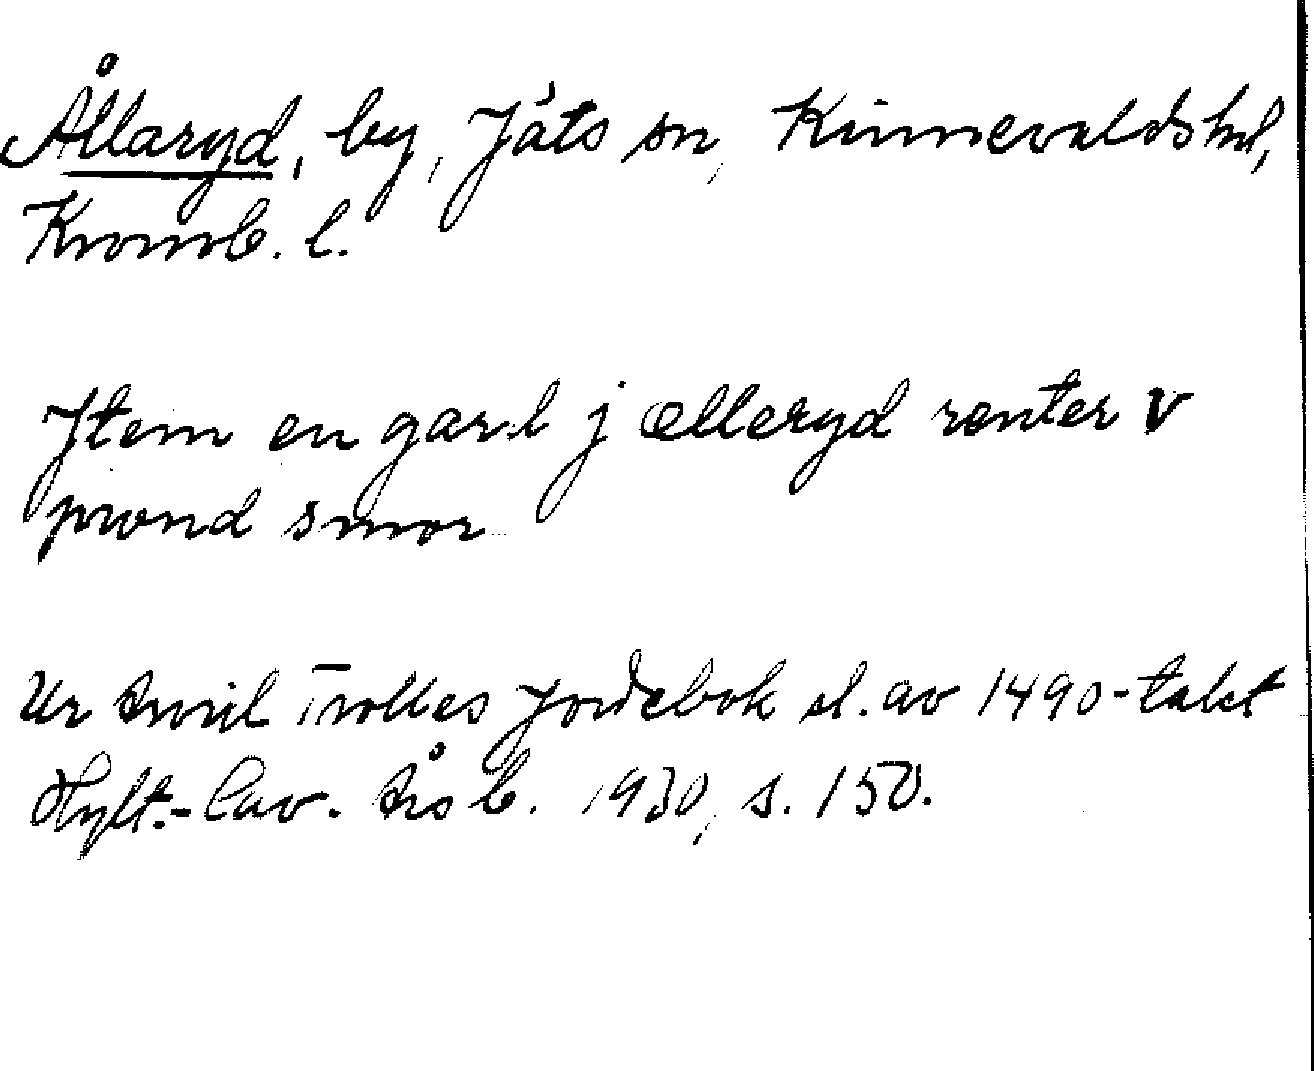 Ållaryd, by, Jäts sn, Kinnevalds hd,
Kronob. l.
Jtem en gard j ælleryd renter v
pwnd smør
Ur Arvid Trolles jordebok sl. av 1490-talet
Hylt.-Cav. Årsb. 1930, s. 150.